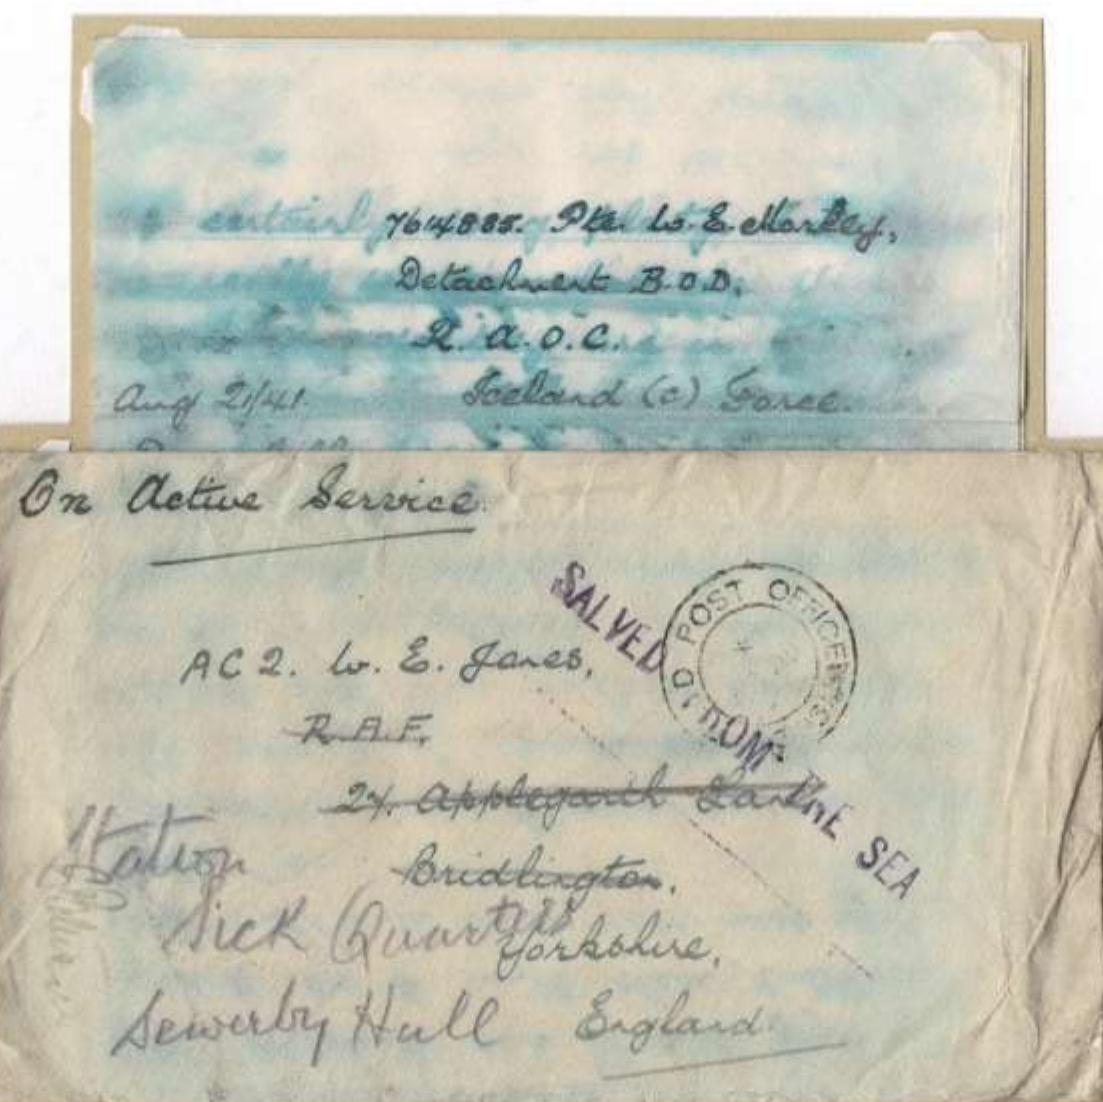 7614885. Pte. W. E. Morley,
Detachment B.O.D.
R. A. O. C.
Iceland (C) Force.
Aug 21/41.
On Active Service
SALVED FROM THE SEA
POST OFFICE
AC2. W. E. Jones,
R.A.F.
24. Applegarth Lane
Bridlington.
Yorkshire,
England.
Station
Sick Quarters
Sewerby Hall